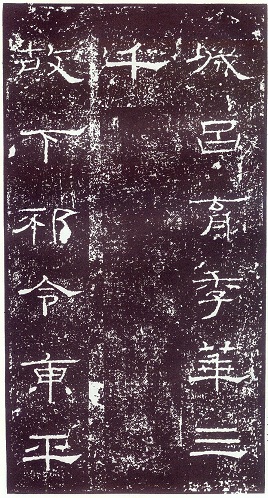 城呂育季華三
千
故下邳令東平